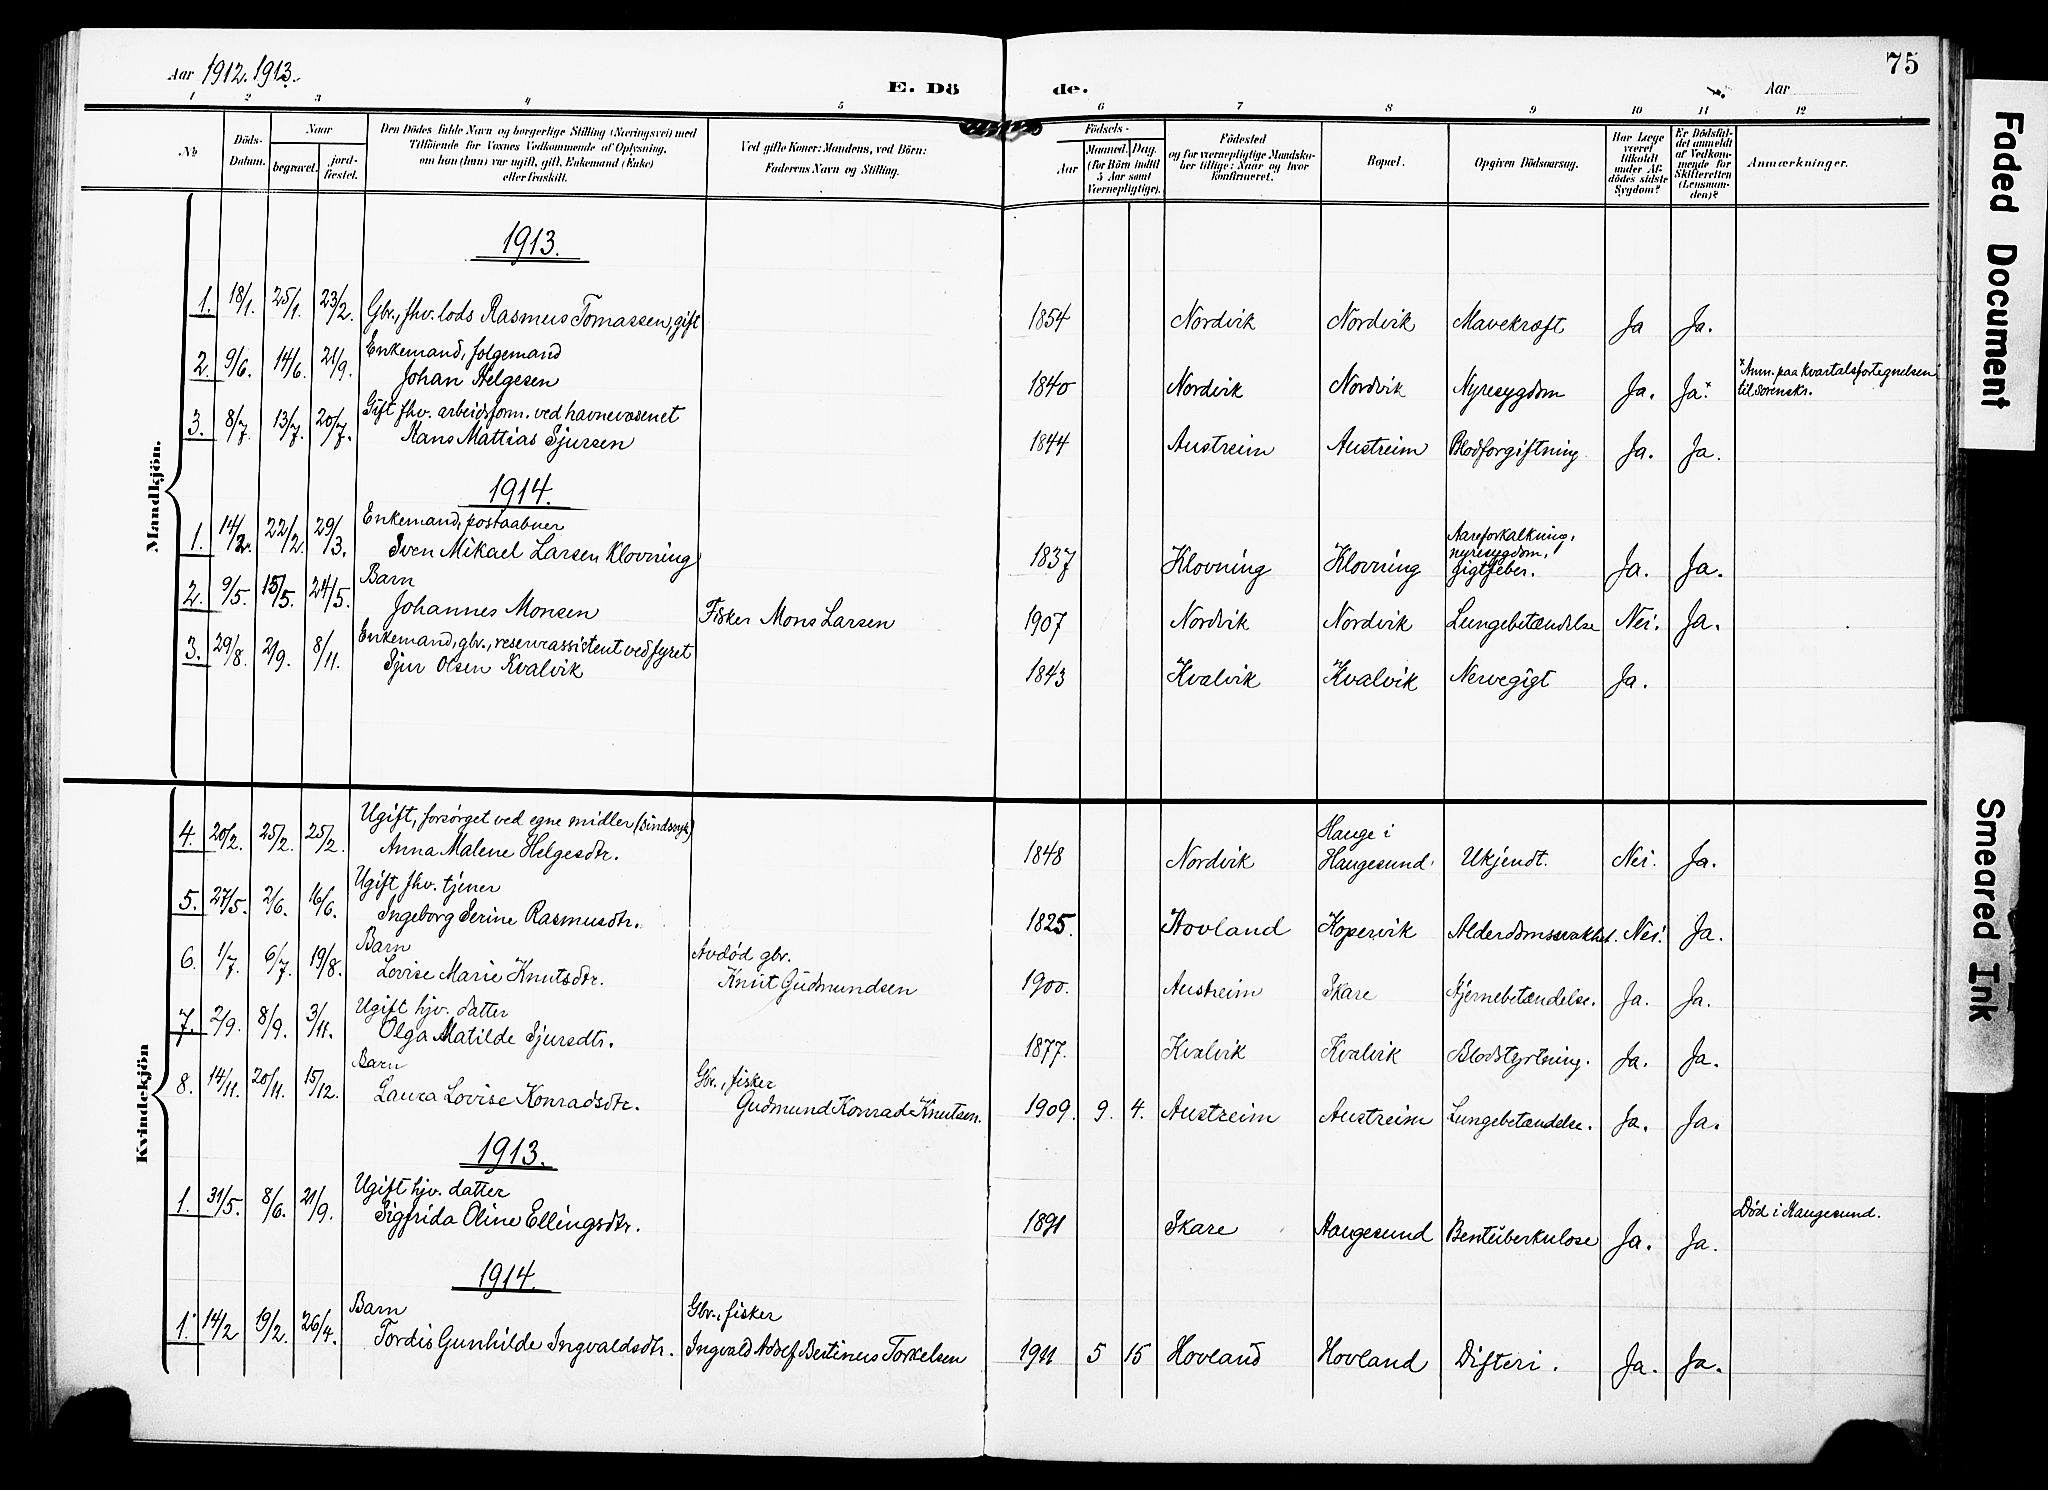 Aar 1912. 1913.
E. Dö
de.
Aar
75
1 2 3 4 5 6 7 8 9 10 11 12
No
Döds-Datum.
Naar
begravet.
jord-fæstet.
Den Dödes fulde Navn og borgerlige Stilling (Næringsvei) med
Tilföiende for Voxnes Vedkommende af Oplysning,
om han (hun) var ugift, gift, Enkemand (Enke)
eller fraskilt.
Ved gifte Koner: Mandens, ved Börn:
Faderens Navn og Stilling.
Födsels-
Aar
Maaned. Dag.
(for Börn indtil
5 Aar samt
Værnepligtige).
Födested
og for værnepligtige Mandskaber tillige: Naar og hvor
konfirmeret.
Bopæl.
Opgiven Dödsaarsag.
Har Læge
været
tilkaldt
under Afdödes sidste
Sygdom?
Er Dödsfaldet anmeldt
af Vedkommende for
Skifteretten
(Lensmanden)?
Anmærkninger.
Mandkjön.
1913.
1. 18/1. 25/1. 23/2. Gbr., fhv. lods Rasmus Tomassen, gift 1854 Nordvik Nordvik Mavekræft Ja Ja.
Enkemand, folgemand
2. 9/6. 14/6. 21/9. Johan Helgesen 1840 Nordvik Nordvik Nyresygdom Ja. Ja.* *Anm. paa kvartalsfortegnelsen
til sorenskr.
Gift fhv. arbeidsform. ved havnevæsenet
3. 8/7. 13/7. 20/7. Hans Mattias Sjursen 1844 Austreim Austreim Blodforgiftning. Ja. Ja.
1914.
Enkemand, postaabner
1. 14/2. 22/2. 29/3. Sven Mikael Larsen Klovning 1837 Klovning Klovning Aareforkalkning,
nyresygdom,
gigtfeber. Ja. Ja.
Barn
2. 9/5. 15/5. 24/5. Johannes Monsen Fisker Mons Larsen 1907 Nordvik Nordvik Lungebetændelse Nei. Ja.
Enkemand, gbr., reserveassistent ved fyret
3. 29/8. 2/9. 8/11. Sjur Olsen Kvalvik 1843 Kvalvik Kvalvik Nervegigt Ja.
Kvindekjön
Ugift, forsørget ved egne midler (sindssyk)
4. 20/2. 25/2. 25/2. Anna Malene Helgesdtr. 1848 Nordvik Hauge i
Haugesund. Ukjendt. Nei. Ja.
Ugift fhv. tjener
5. 27/5. 2/6. 16/6. Ingeborg Serine Rasmusdtr. 1825. Hovland Kopervik Alderdomssvakhet. Nei. Ja.
Barn Avdød gbr.
6. 1/7. 6/7. 19/8. Lovise Marie Knutsdtr. Knut Gudmundsen 1900. Austreim Skare Hjernebetændelse. Ja. Ja.
Ugift hjv. datter
7. 2/9. 8/9. 3/11. Olga Matilde Sjursdtr. 1877. Kvalvik Kvalvik Blodstyrtning. Ja. Ja.
Barn Gbr., fisker
8. 14/11. 20/11. 15/12. Laura Lovise Konradsdtr. Gudmund Konrad Knutsen. 1909. 9. 4. Austreim Austreim Lungebetændelse. Ja. Ja.
1913.
Ugift hjv. datter
1. 31/5. 8/6. 21/9. Sigfrida Oline Ellingsdtr. 1891 Skare Haugesund Bentüberkulose Ja. Ja. Død i Haugesund.
1914.
Barn Gbr., fisker
1. 14/2 19/2. 26/4. Tordis Gunhilde Ingvaldsdtr. Ingvald Adolf Bertinius Torkelsen 1911 5 15 Hovland Hovland Difteri. Ja. Ja.
Faded Document
Smeared Ink